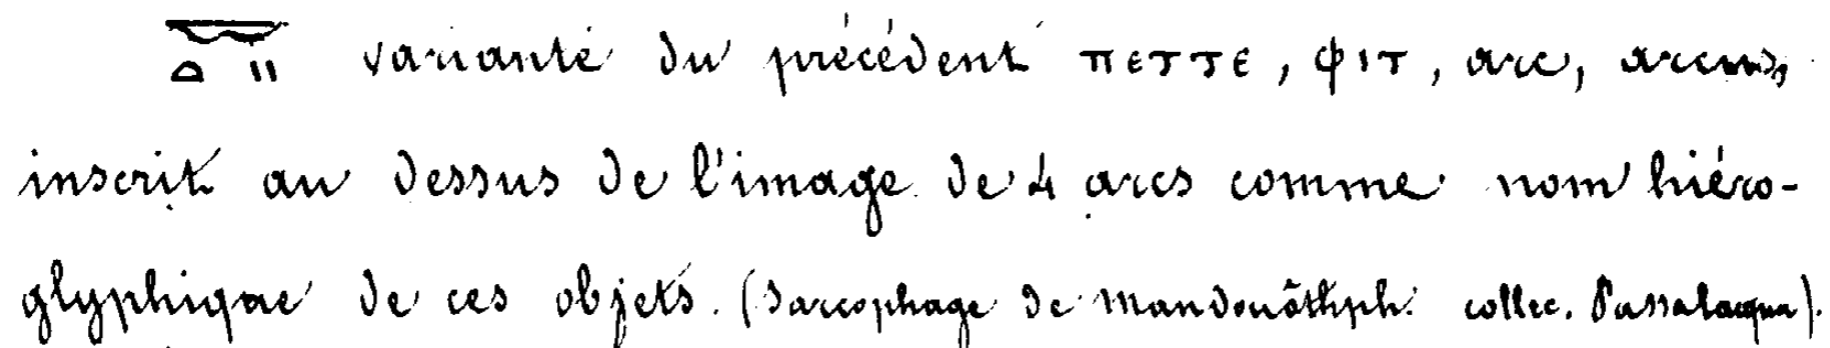 variante du précédent ⲡⲉⲧⲧⲉ, ⲫⲓⲧ, arc, arcus,
inscrit au dessus de l'image de 4 arcs comme nom hiéro-
glyphique de ces objets. (Sarcophage de Mandouôthph. collec. Passalacqua).